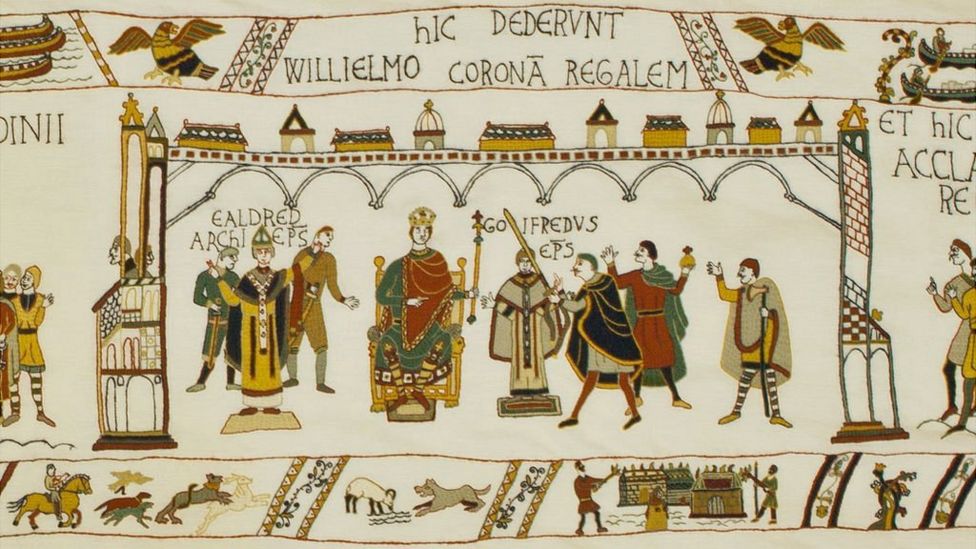 hIC DEDERVNT
WILLIELMO CORONĀ REGALEM
DINII
ET hIC
ACCLA
RE
EALDRED
ARChI EPS
GOIFREDVS
EPS